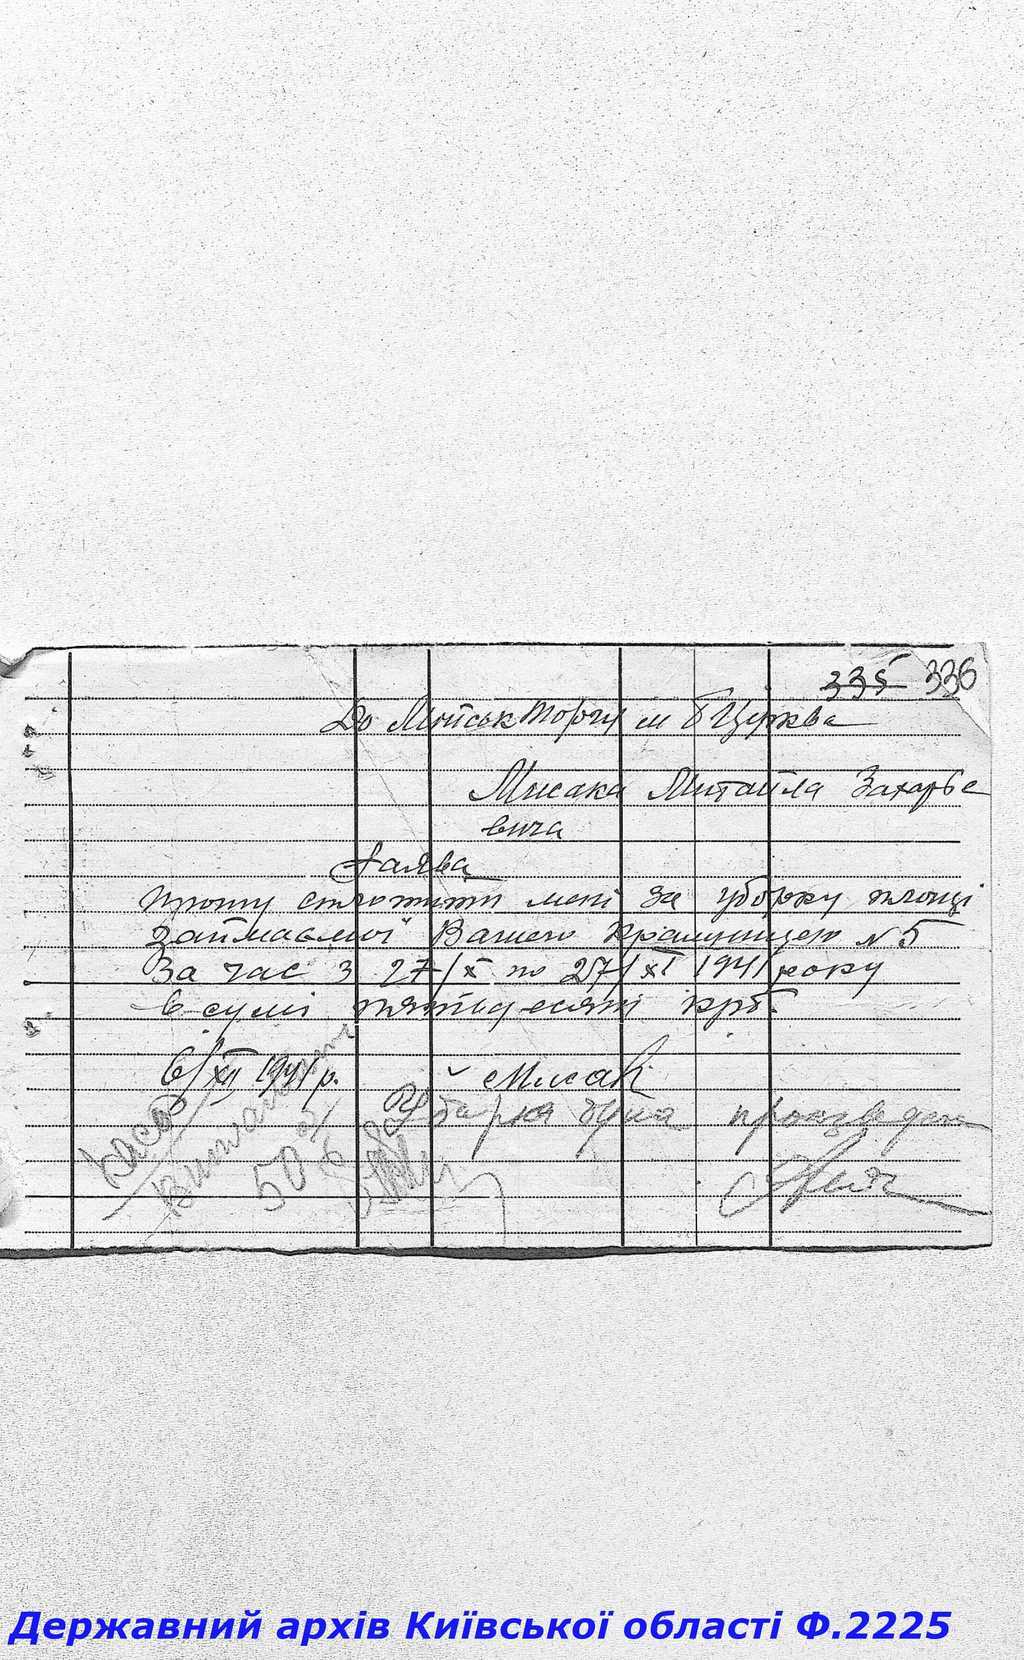 335 336
До Міськ Торгу м Б Церква
Мисака Михайла Захарьє
вича
Заява
Прошу сплотити мені за уборку площі
займаємої Вашею Крамницею № 5
За час з 27/X по 27/XI 1941 року
в сумі пятьдесяті крб.
6/XII 1941 р. Мисак
Уборка була произведена
Каса
Виплатити
50
Державний архів Київської області Ф.2225